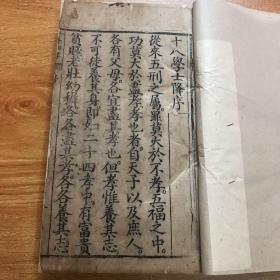 十八學士降序
從來五刑之屬罪莫大於不孝五福之中
功莫大於盡孝孝也者自天子以及庶人
各有父母各宜盡其孝也但孝惟養其志
不可徒養其身即如二十四孝中有富貴
貧賤老壯幼穉各各盡其孝各各養其志